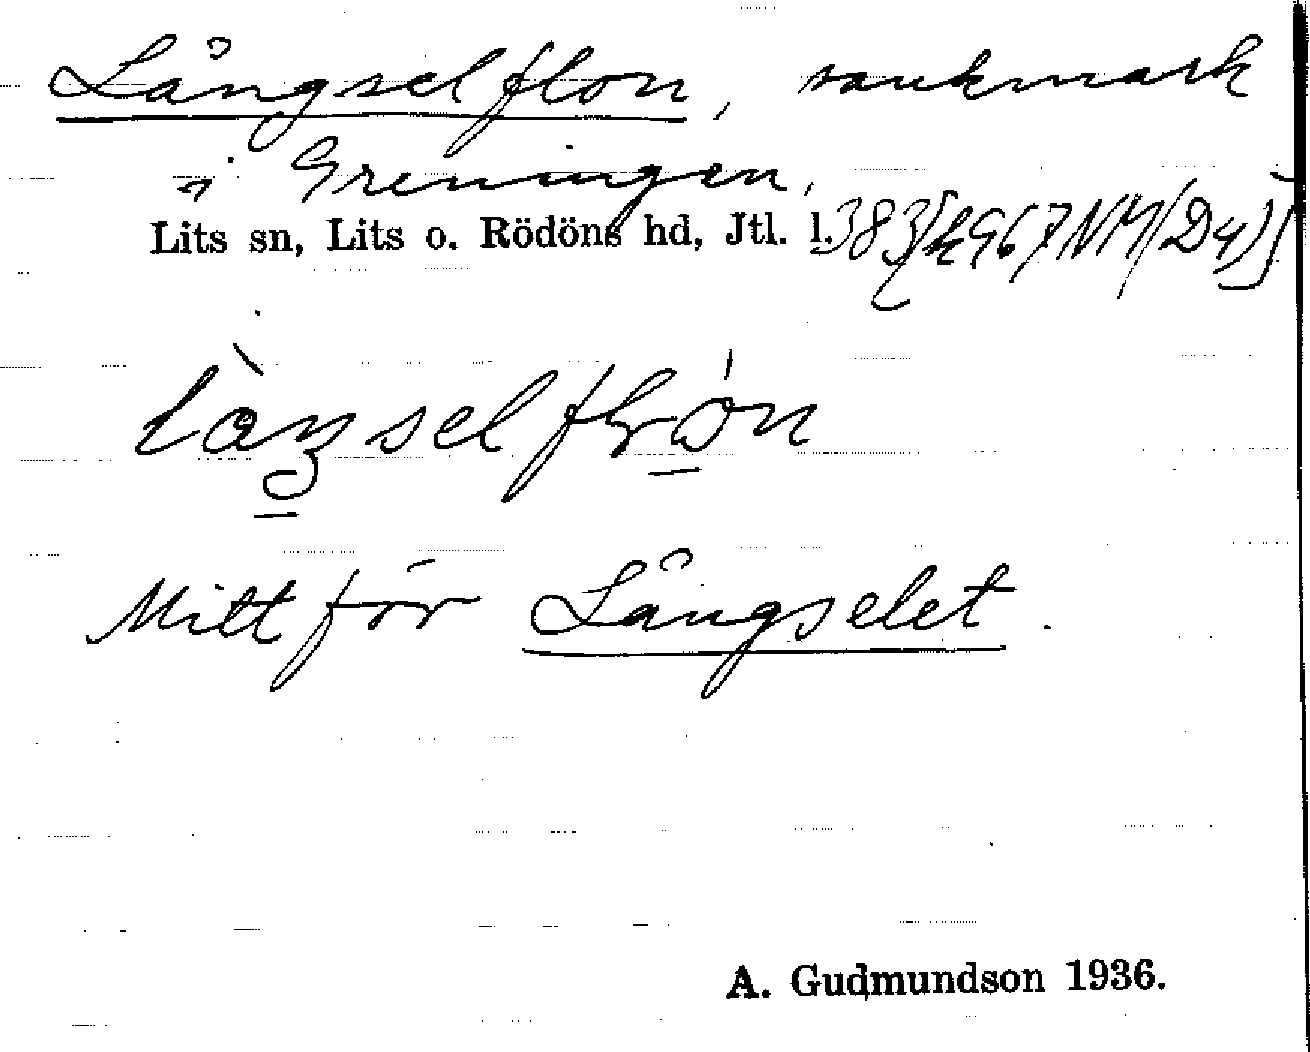 Långselflon, sankmark
i Greningen,
Lits sn, Lits o. Rödöns hd, Jtl. l. 383
Mitt för Långselet.
A. Gudmundson 1936.